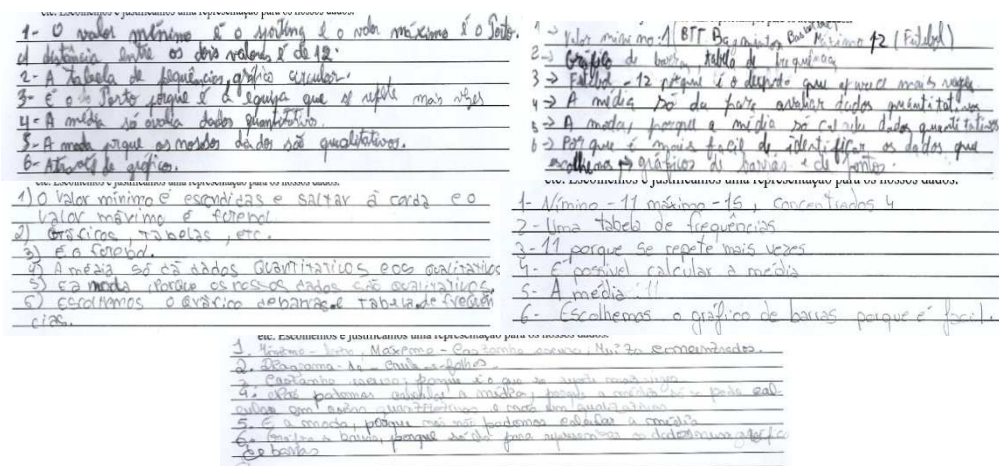 1- O valor mínimo é o sporting e o valor máximo é o Porto.
A distância entre os dois valores é de 12.
2- A tabela de frequências, gráfico circular.
3- É o Porto porque é a equipa que se repete mais vezes
4- A média só avalia dados quantitativos.
5- A moda porque os nossos dados são qualitativos.
6- Através de gráficos.
etc. Escolhemos e justificamos uma representação para os nossos dados.
1 → Valor minimo: 1 (BTT Máximo 12 (Futebol)
2 → Gráfico de barra, tabela de frequência
3 → Futebol - 12 porque é o desporto que aparece mais vezes
4 → A média só da para avaliar dados quantitativos
5 → A moda, porque a média só dados quantitativos
6 → Porque é mais facil de identificar os dados que
escolhemos → gráficos de barras e de pontos
etc. Escolhemos e justificamos uma representação para os nossos dados.
1) O valor mínimo é escondidas e saltar à corda e o
valor máximo é futebol
2) Gráficos, Tabelas, etc.
3) É o futebol.
4) A média só dá dados quantitativos e os qualitativos
5) É a moda, porque os nossos dados são qualitativos.
6) Escolhemos o gráfico de barras e tabela de frequên
cias.
1- Mínino - 11 máximo - 15, concentrados 4
2- Uma tabela de frequências
3- 11 porque se repete mais vezes
4- É possível calcular a média
5- A média 11
6- Escolhemos o gráfico de barras porque é facil.
etc. Escolhemos e justificamos uma representação para os nossos dados.
1. Mínimo - Maximo - Castanho escuro, concentrados.
2. Diagrama de caule-e-folhas
3. Castanho escuro, porque é o que se repete mais vezes
4. Não podemos calcular a média, porque a média só se pode cal
cular em quantitativos e não em qualitativos
5. É a moda, porque nós não podemos calcular a média
6. barras, porque só dá para representar os dados num gráfico
de barras